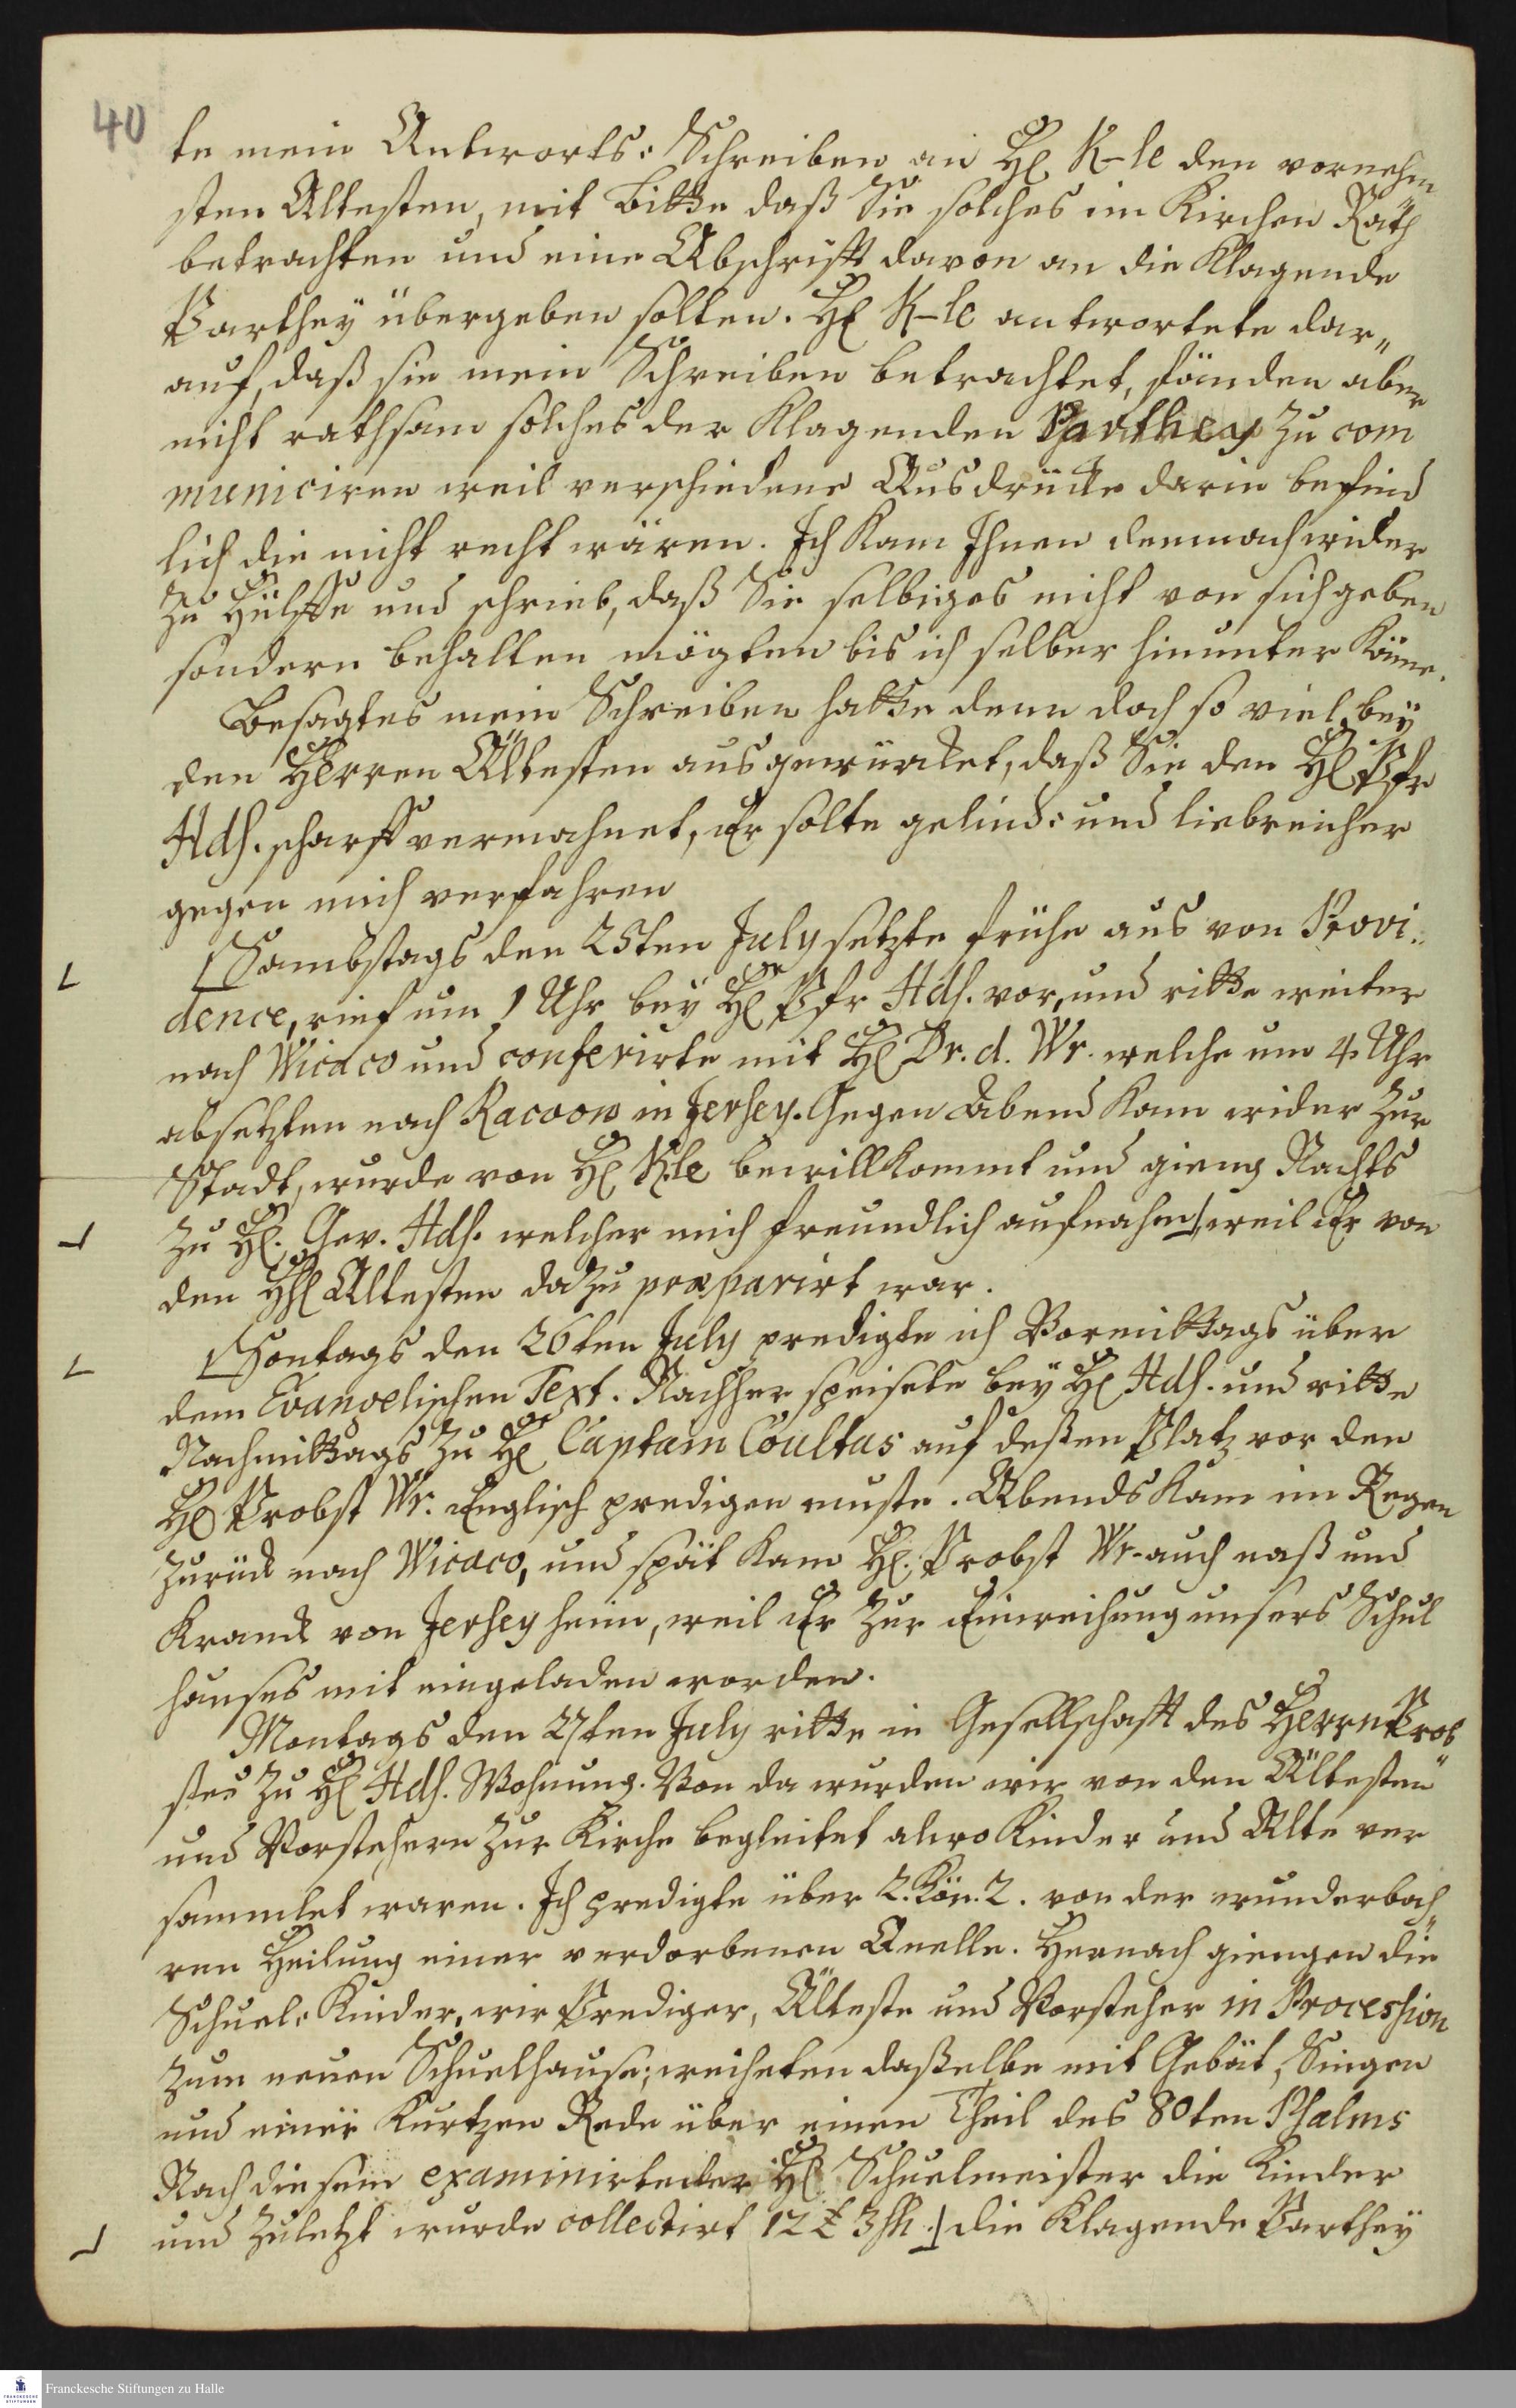 40
te mein Antworts-Schreiben an H. K-le den vornehm
sten Altesten, mit bitte daß Sie solches im Kirchen Rath
betrachten und eine Abschrifft davon an die Klagende
Parthey übergeben solten. H. K-le antwortete dar„
auf, daß sie mein Schreiben betrachtet, fänden aber
nicht rathsam solches der Klagenden Parthey zu com
municiren weil verschiedene Ausdrücke darin befind
lich die nicht recht wären. Ich kam Ihnen demnach wider
zu Hülffe und schrieb, daß Sie selbiges nicht von sich geben
sondern behalten mögten bis ich selber hinunter käme.
Besagtes mein Schreiben hatte denn doch so viel bey
den Herren Ältesten ausgewürcket, daß Sie den H. Pfr
Hdsh. scharff vermahnet, Er solte gelind- und liebreicher
gegen mich verfahren
[Sambstags den 25ten July setzte frühe aus von Provi„
dence, rief um 1 Uhr bey H. Pfr Hdsh. vor, und ritte weiter
nach Wicaco und conferirte mit H. Dr. d. Wr. welche um 4 Uhr
absetzten nach Racoon in Jersey. Gegen Abend kam wider zur
Stadt, wurde von H. K-le bewillkommt und gieng Nachts
zu H. Gev. Hdsh. welcher mich freundlich aufnahm], weil Er von
den HH. Altesten dazu præparirt war.
[Sontags den 26ten July predigte ich Vormittags über
dem Evangelischen Text. Nachher speisete bey H. Hdsh. und ritte
Nachmittags zu H. Captain Coultas auf deßen Platz vor den
H. Probst Wr. Englisch predigen muste. Abends kam im Regen
zurück nach Wicaco, und spät kam H. Probst Wr. auch naß und
kranck von Jersey heim, weil Er zur Einweihung unsers Schul
hauses mit eingeladen worden.
Montags den 27ten July ritte in Gesellschafft des Herrn Prob
stes zu H. Hdsh. Wohnung. Von da wurden wir von den Ältesten
und Vorstehern zur Kirche begleitet alwo Kinder und Alte ver
sammlet waren. Ich predigte über 2. Kön. 2. von der wunderbah„
ren Heilung einer verdorbenen Quelle. Hernach giengen die
Schuel-Kinder, wir Prediger, Älteste und Vorsteher in Procession
zum neuen Schuelhause; weiheten daßelbe mit Gebät, Singen
und einer kurtzen Rede über einen Theil des 80ten Psalms
Nach diesem examinirte der H. Schuelmeister die Kinder
und zuletzt wurde collectirt 12 £ 3 sh.] die Klagende Parthey
Franckesche Stiftungen zu Halle
FRANCKESCHE
STIFTUNGEN